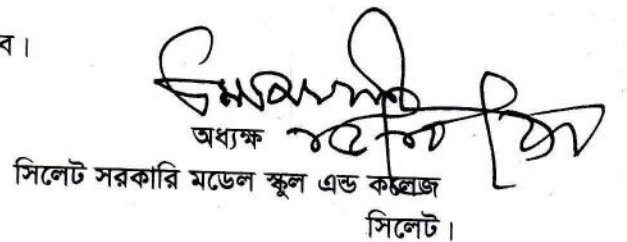 ব।
অধ্যক্ষ
সিলেট সরকারি মডেল স্কুল এন্ড কলেজ
সিলেট।